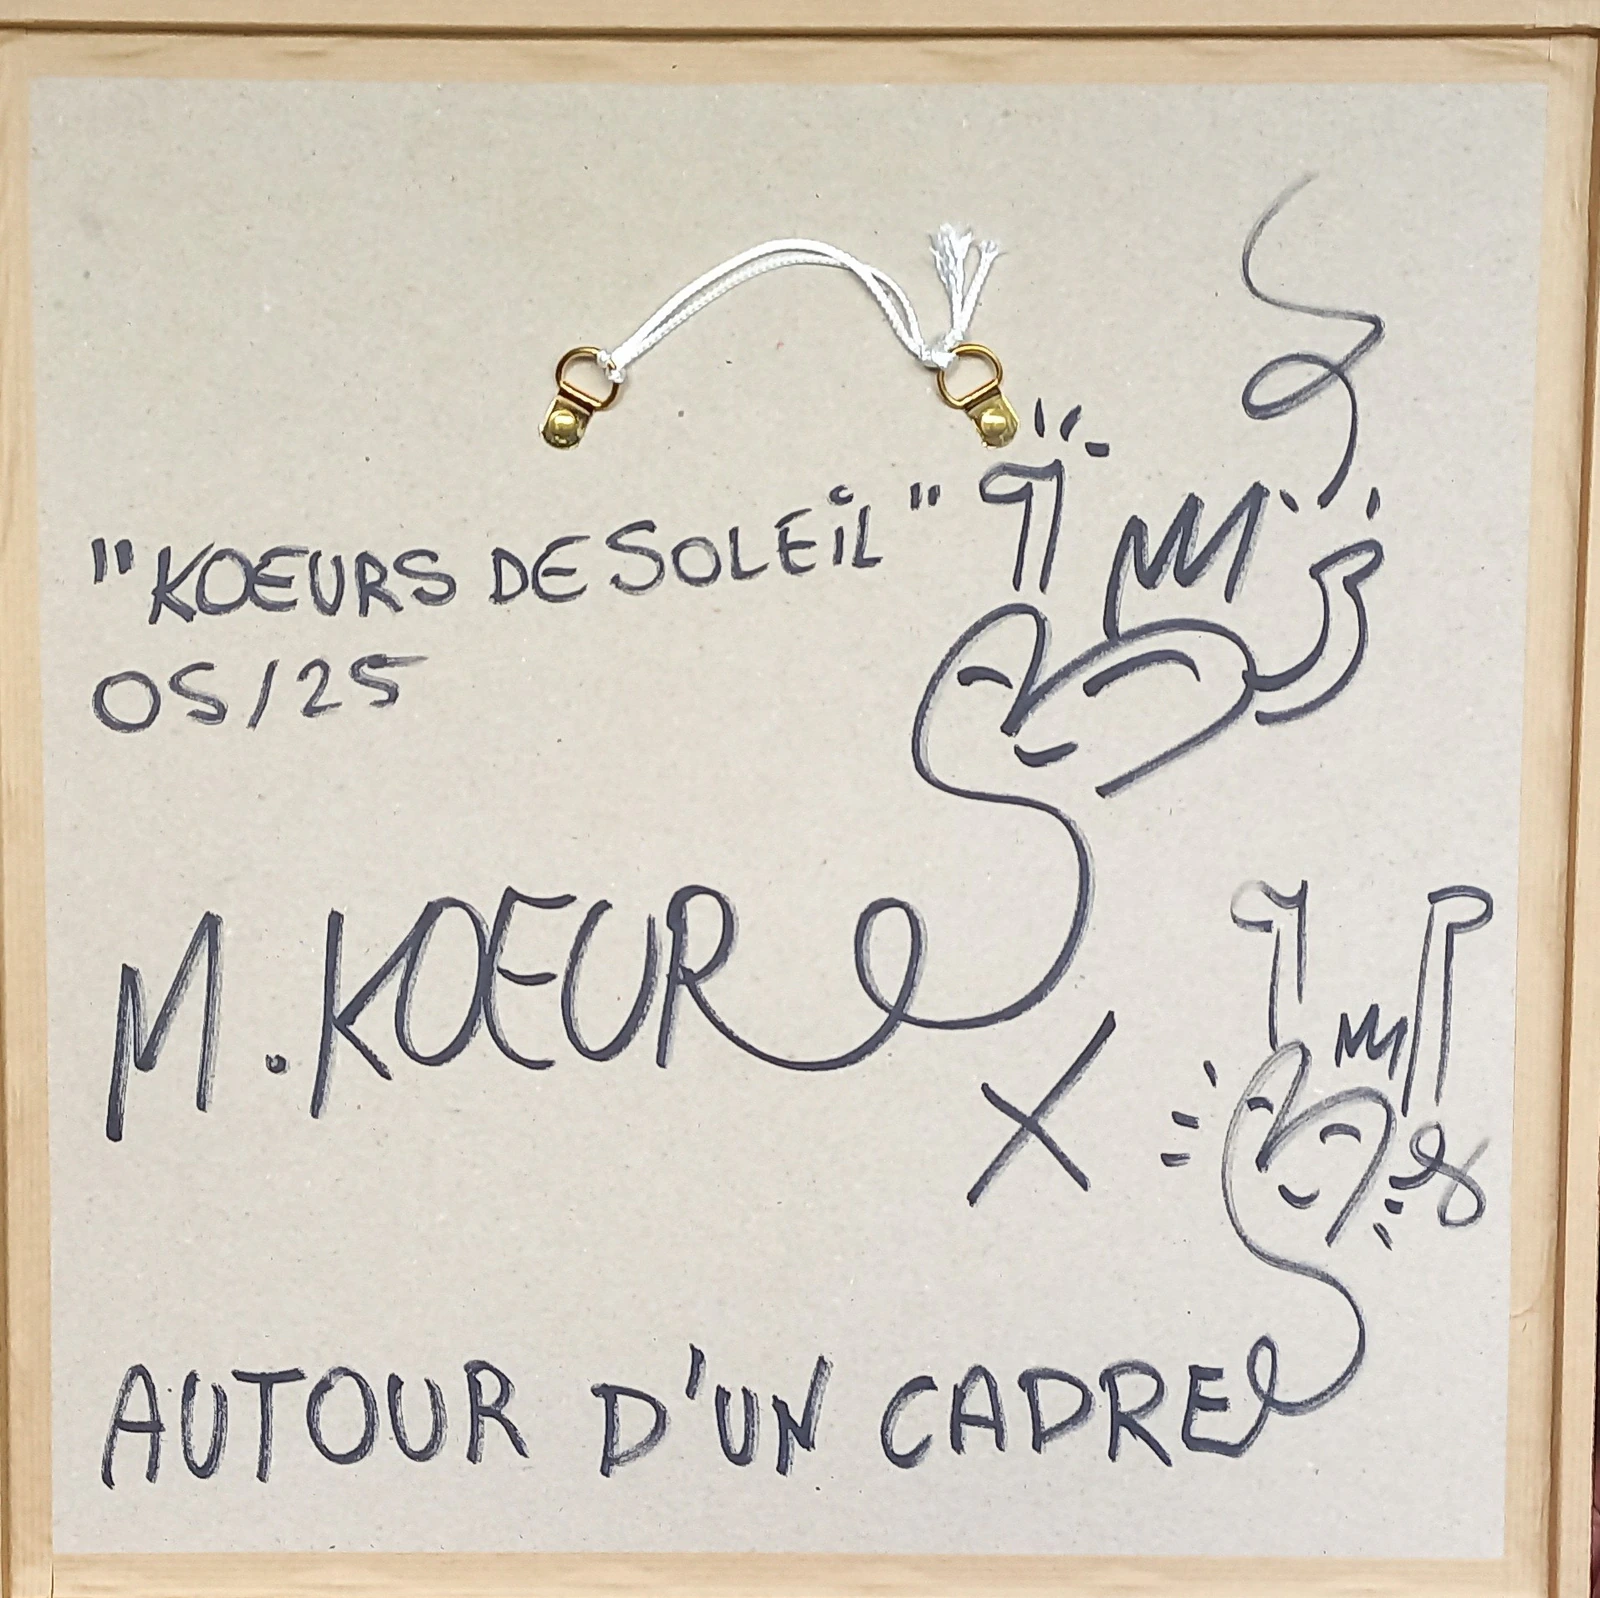 "KOEURS DE SOLEIL"
05/25
M. KOEUR
X
AUTOUR D'UN CADRE